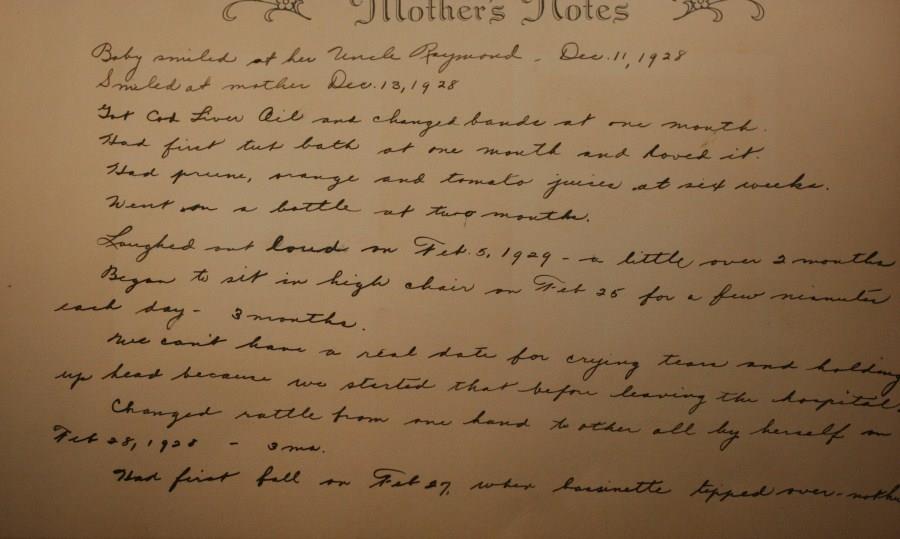 Mother's Notes
Baby smiled at her Uncle Raymond - Dec. 11, 1928
Smiled at mother Dec. 13, 1928
Got Cod Liver Oil and changed bands at one month.
Had first tub bath at one month and loved it.
Had prune, orange and tomato juices at six weeks.
Went on a bottle at two months.
Laughed out loud on Feb. 5, 1929 - a little over 2 months
Began to sit in high chair on Feb 25 for a few minutes
each day - 3 months.
We can't have a real date for crying tears and holding
up head because we started that before leaving the hospital.
Changed rattle from one hand to other all by herself on
Feb 28, 1928 - 3 mo.
Had first fall on Feb 27, when bassinette tipped over -